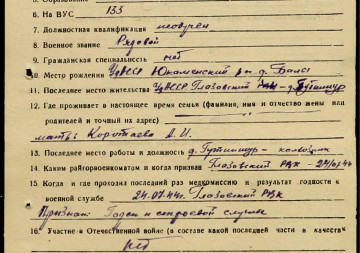 6. На ВУС 133
7. Должностная квалификация необучен
8. Военное звание Рядовой
9. Гражданская специальность нет
10. Место рождения УАССР Юкаменский р-н д.
11. Последнее место жительства УАССР Глазовский р-н д.
12. Где проживает в настоящее время семья (фамилия, имя и отчество жены или
родителей и точный их адрес)
мать: Коротаева А. И.
13. Последнее место работы и должность д. колхозник
14. Каким райгорвоенкоматом и когда призван Глазовский РВК 24/07 44
15. Когда и где проходил последний раз медкомиссию и результат годности к
военной службе 24.07.44г. Глазовский РВК
Признан: Годен к строевой службе
16. Участие в Отечественной войне (в составе какой последней части и в качестве
нет